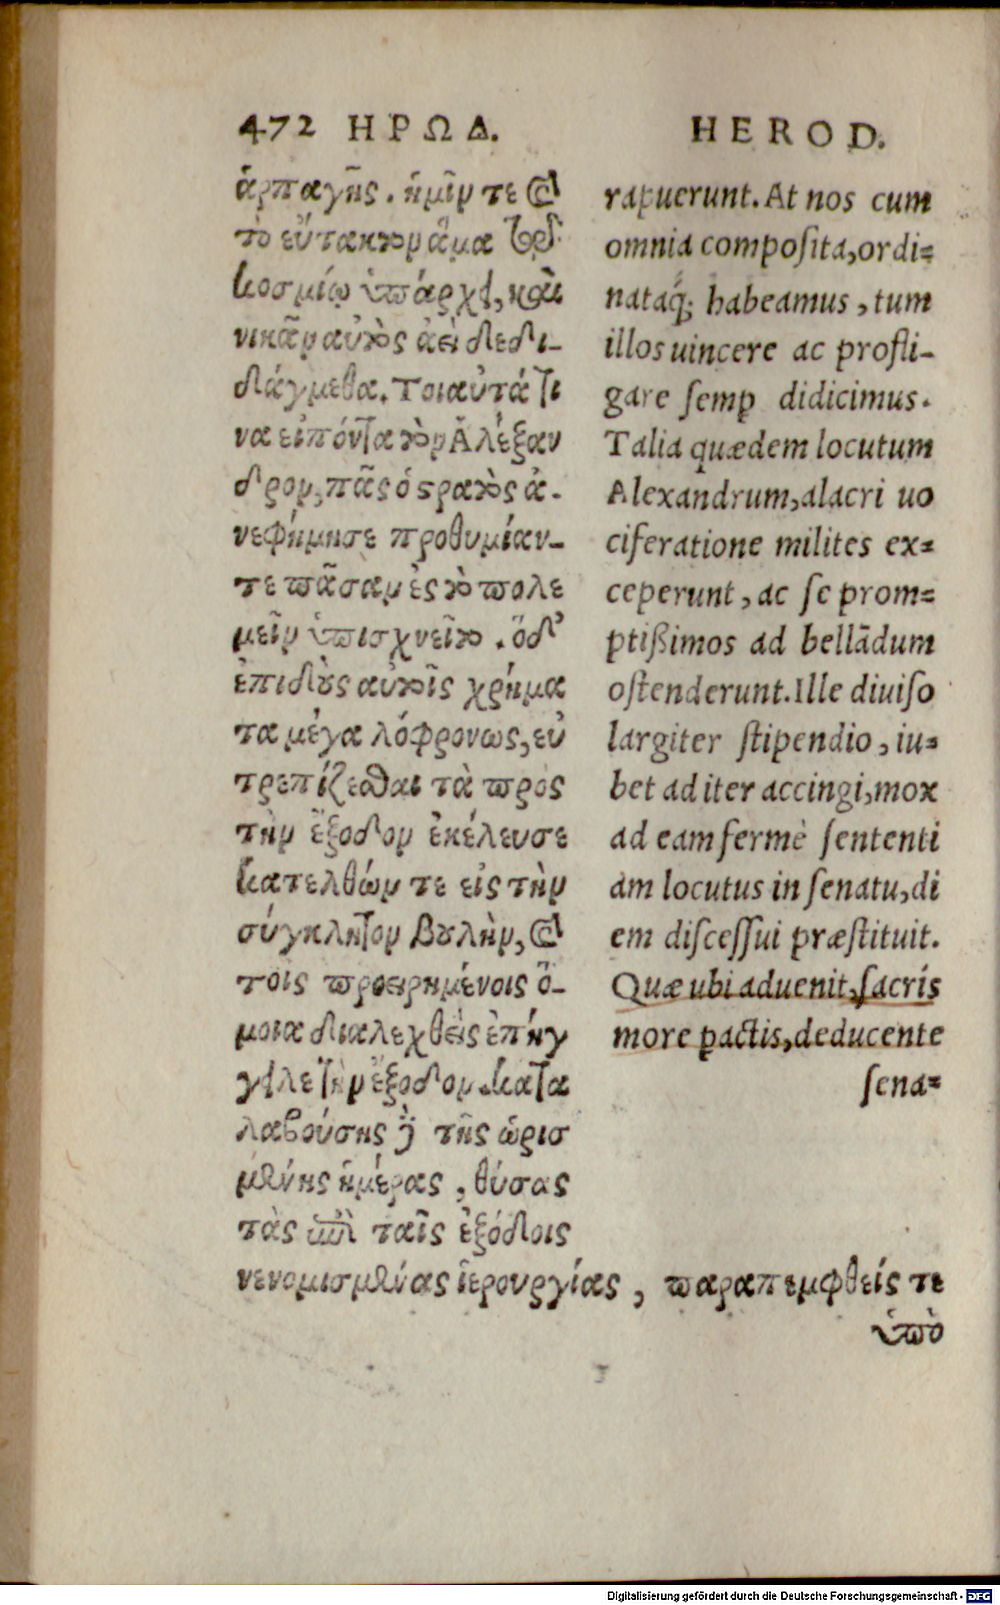 472 ΗΡΩΔ.
ἁρπαγῆς. ἡμῖν τε καὶ
τὸ εὔτακτον ἅμα τῷ
κοσμίῳ ὑπάρχει, καὶ
νικᾶν αὐτοὺς ἀεὶ δεδι-
δάγμεθα. Τοιαῦτά τι
να εἰπόντα τὸν Ἀλέξαν
δρον, πᾶς ὁ στρατὸς ἀ-
νεφήμησε προθυμίαν-
τε πᾶσαν ἐς τὸ πολε
μεῖν ὑπισχνεῖτο. ὁ δ'
ἐπιδοὺς αὐτοῖς χρήμα
τα μεγαλόφρονως, εὐ
τρεπίζεσθαι τὰ πρὸς
τὴν ἔξοδον ἐκέλευσε
κατελθών τε εἰς τὴν
σύγκλητον βουλὴν, καὶ
τοῖς προειρημένοις ὅ-
μοια διαλεχθεὶς ἐπήγ
γειλε τὴν ἔξοδον. κατα
λαβούσης δὲ τῆς ὡρισ
μένης ἡμέρας, θύσας
τὰς ἐπὶ ταῖς ἐξόδοις
νενομισμένας ἱερουργίας, παραπεμφθείς τε
ὑπὸ
HEROD.
rapuerunt. At nos cum
omnia composita, ordi=
nataq; habeamus, tum
illos uincere ac profli-
gare semp didicimus.
Talia quædem locutum
Alexandrum, alacri uo
ciferatione milites ex=
ceperunt, ac se prom=
ptißimos ad bellādum
ostenderunt. Ille diuiso
largiter stipendio, iu=
bet ad iter accingi, mox
ad eam fermè sententi
am locutus in senatu, di
em discessui præstituit.
Quæ ubi aduenit, sacris
more pactis, deducente
sena=
Digitalisierung gefördert durch die Deutsche Forschungsgemeinschaft - DFG